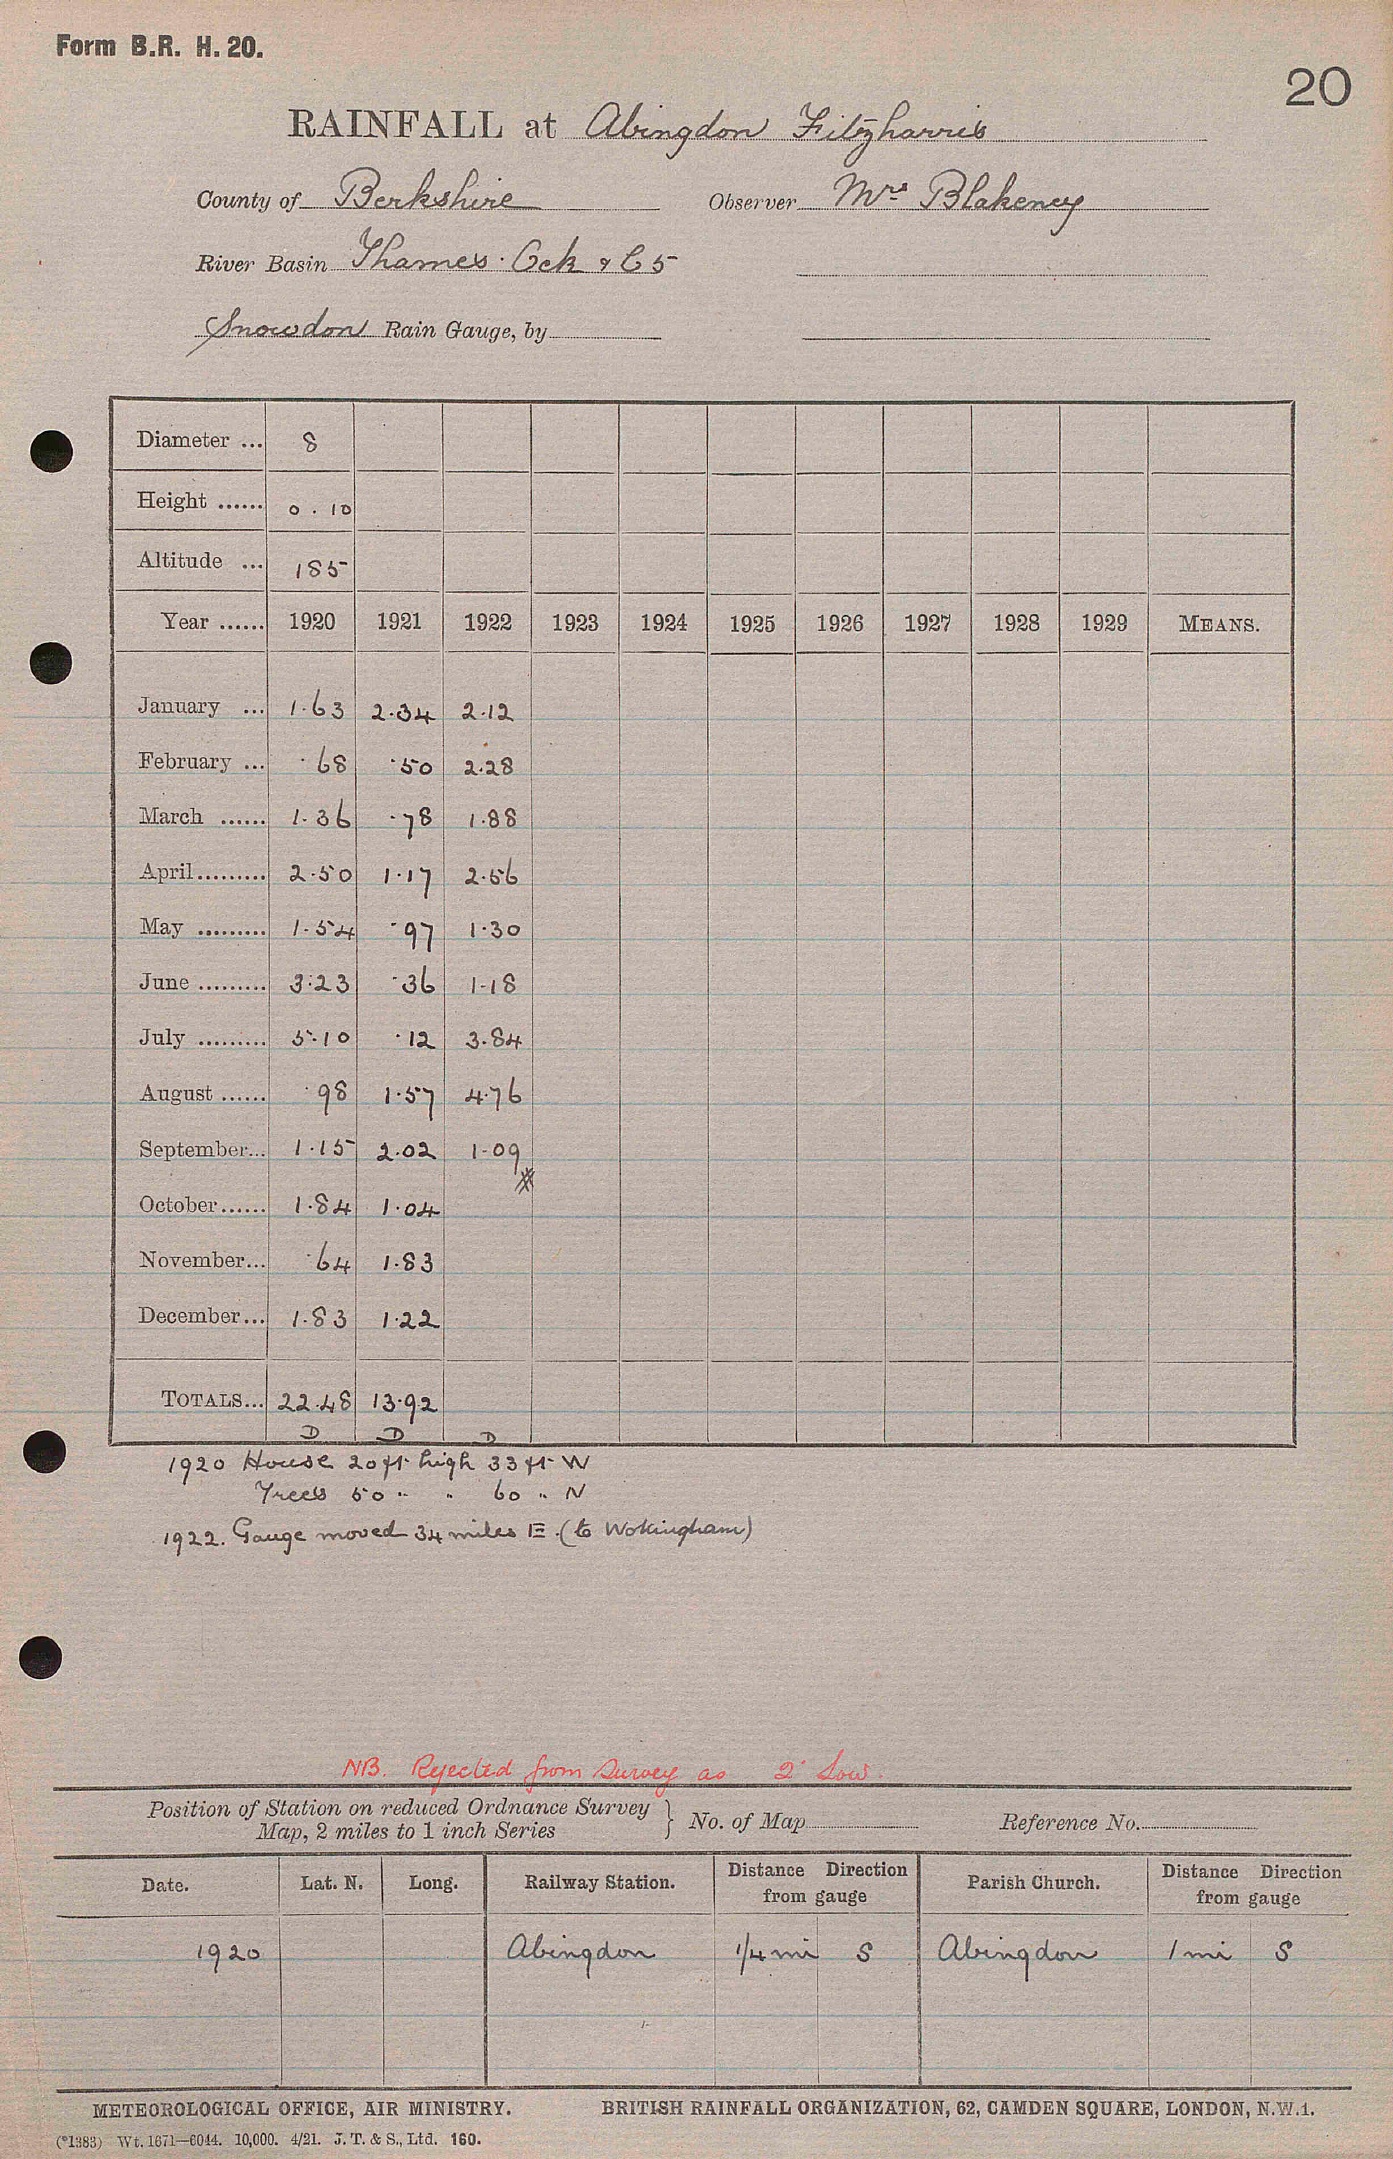 Form B.R. H. 20.
20
RAINFALL at Abingdon Fitzharris
County of Berkshire Observer Mrs Blakeney
River Basin Thames. Ock & C5
Snowdon Rain Gauge, by
Diameter ... 8
Height ...... 0.10
Altitude ... 185
Year ...... 1920 1921 1922 1923 1924 1925 1926 1927 1928 1929 MEANS.
January ... 1.63 2.34 2.12
February ... .68 .50 2.28
March ...... 1.36 .78 1.88
April ......... 2.50 1.17 2.56
May ......... 1.54 .97 1.30
June ......... 3.23 .36 1.18
July ......... 5.10 .12 3.84
August ...... .98 1.57 4.76
September... 1.15 2.02 1.09
October...... 1.84 1.04
November... .64 1.83
December... 1.83 1.22
TOTALS... 22.48 13.92
D D D
1920 House 20 ft high 33 ft W
Trees 50 " " 60 " N
1922. Gauge moved 34 miles E. (to Wokingham)
NB. Rejected from Survey as 2" Low.
Position of Station on reduced Ordnance Survey Map, 2 miles to 1 inch Series } No. of Map Reference No.
Date. Lat. N. Long. Railway Station. Distance Direction from gauge Parish Church. Distance Direction from gauge
1920 Abingdon 1/4 mi S Abingdon 1 mi S
METEOROLOGICAL OFFICE, AIR MINISTRY. BRITISH RAINFALL ORGANIZATION, 62, CAMDEN SQUARE, LONDON, N.W.1.
(*1383) Wt. 1671—6044. 10,000. 4/21. J. T. & S., Ltd. 160.